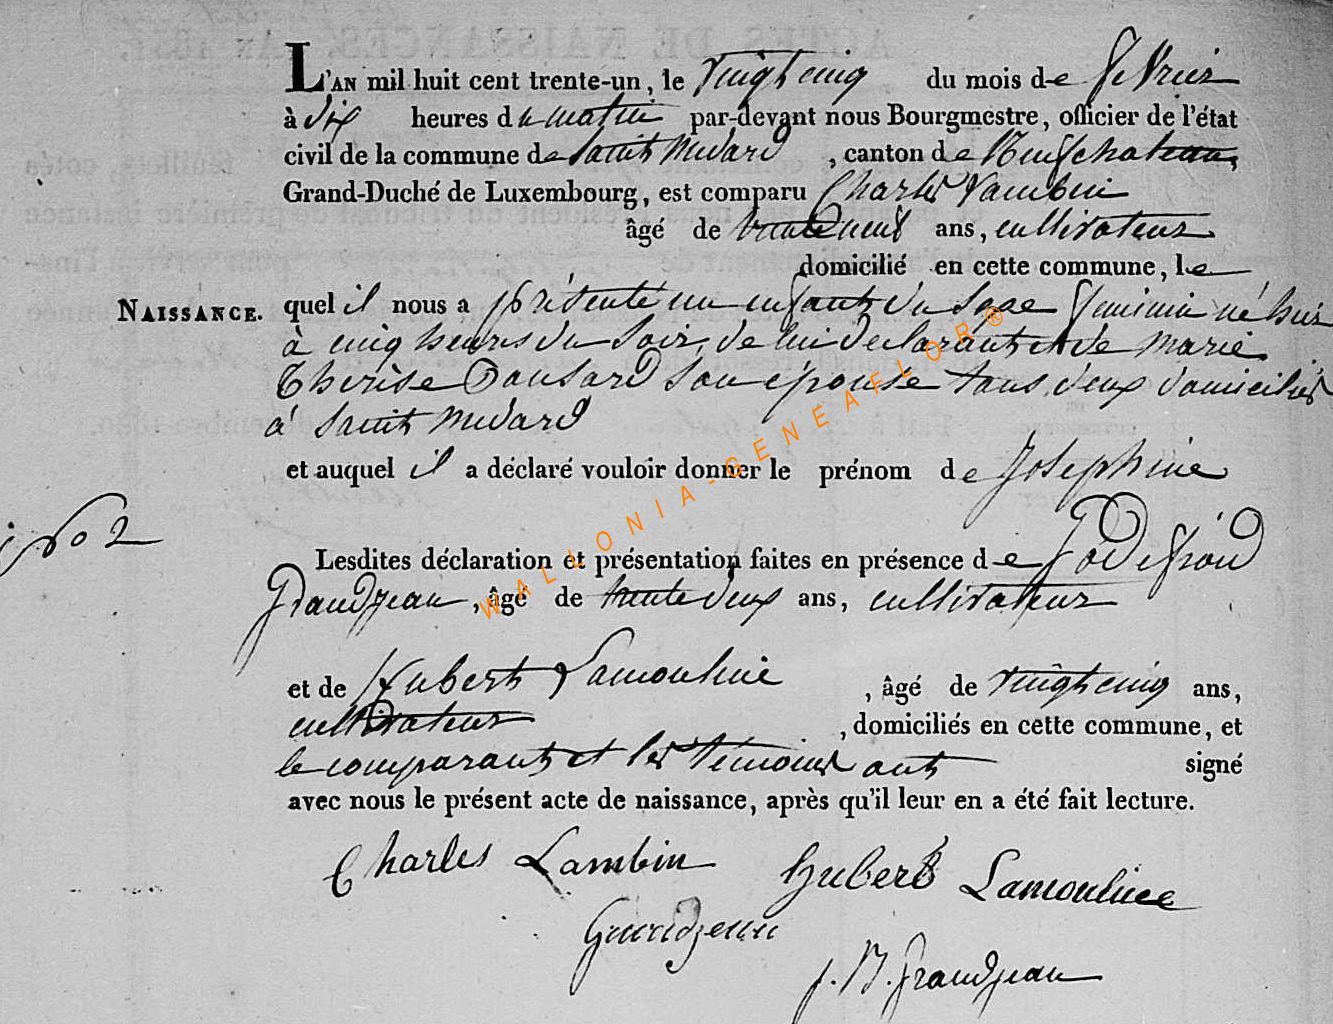 L'AN mil huit cent trente-un, le vingt cinq du mois de fevrier
à dix heures du matin par-devant nous Bourgmestre, officier de l'état
civil de la commune de Saint Médard, canton de Neufchateau,
Grand-Duché de Luxembourg, est comparu Charles Lambin
âgé de trente neuf ans, cultivateur
domicilié en cette commune, le
NAISSANCE. quel il nous a présenté un enfant du sexe feminin né hier
à cinq heures du soir, de lui declarant et de Marie
Therèse Dausard son épouse tous deux domiciliés
à Saint Médard
et auquel il a déclaré vouloir donner le prénom de Josephine
Lesdites déclaration et présentation faites en présence de Godefroid
Grandjean, âgé de trente deux ans, cultivateur
et de Hubert Lamouline, âgé de vingt cinq ans,
cultivateur, domiciliés en cette commune, et
le comparant et les témoins ont signé
avec nous le présent acte de naissance, après qu'il leur en a été fait lecture.
Charles Lambin Hubert Lamouline
Grandjean
J. B. Grandjean
WALLONIA-GENEAFLOR®